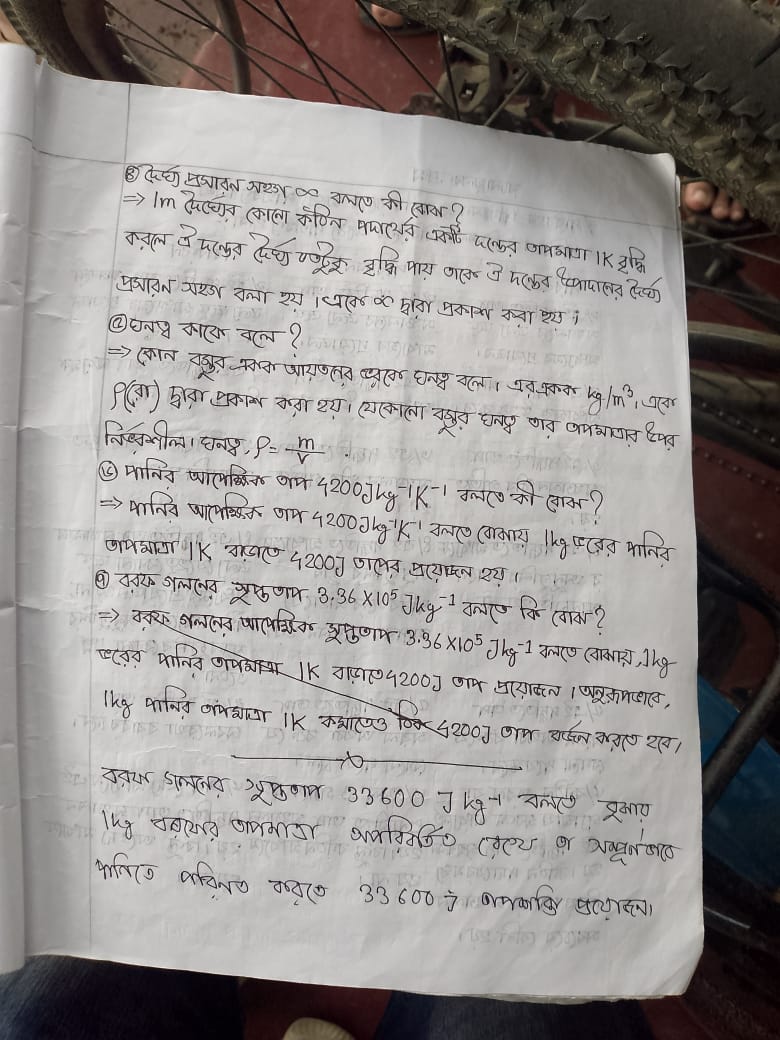 ④ দৈর্ঘ্য প্রসারন সহগ ∝ বলতে কী বোঝ?
⇒ 1m দৈর্ঘ্যের কোনো কঠিন পদার্থের একটি দন্ডের তাপমাত্রা 1K বৃদ্ধি
করলে ঐ দন্ডের দৈর্ঘ্য যতটুকু বৃদ্ধি পায় তাকে ঐ দন্ডের উপাদানের দৈর্ঘ্য
প্রসারন সহগ বলা হয়। একে ∝ দ্বারা প্রকাশ করা হয়।
⑤ ঘনত্ব কাকে বলে?
⇒ কোন বস্তুর একক আয়তনের ভরকে ঘনত্ব বলে। এর একক kg/m³, একে
ρ(রো) দ্বারা প্রকাশ করা হয়। যেকোনো বস্তুর ঘনত্ব তার তাপমাত্রার উপর
নির্ভরশীল। ঘনত্ব, ρ = m/v .
⑥ পানির আপেক্ষিক তাপ 4200Jkg⁻¹K⁻¹ বলতে কী বোঝ?
⇒ পানির আপেক্ষিক তাপ 4200Jkg⁻¹K⁻¹ বলতে বোঝায় 1kg ভরের পানির
তাপমাত্রা 1K বাড়াতে 4200J তাপের প্রয়োজন হয়।
⑦ বরফ গলনের সুপ্ততাপ 3.36×10⁵ Jkg⁻¹ বলতে কি বোঝ?
⇒ বরফ গলনের আপেক্ষিক সুপ্ততাপ 3.36×10⁵ Jkg⁻¹ বলতে বোঝায়, 1kg
ভরের পানির তাপমাত্রা 1K বাড়াতে 4200J তাপ প্রয়োজন। অনুরূপভাবে,
1kg পানির তাপমাত্রা 1K কমাতেও ঠিক 4200J তাপ বর্জন করতে হবে।
বরফ গলনের সুপ্ততাপ 33600 J kg⁻¹ বলতে বুঝায়
1kg বরফের তাপমাত্রা অপরিবর্তিত রেখে তা সম্পূর্ণভাবে
পানিতে পরিনত করতে 33600 J তাপশক্তি প্রয়োজন।